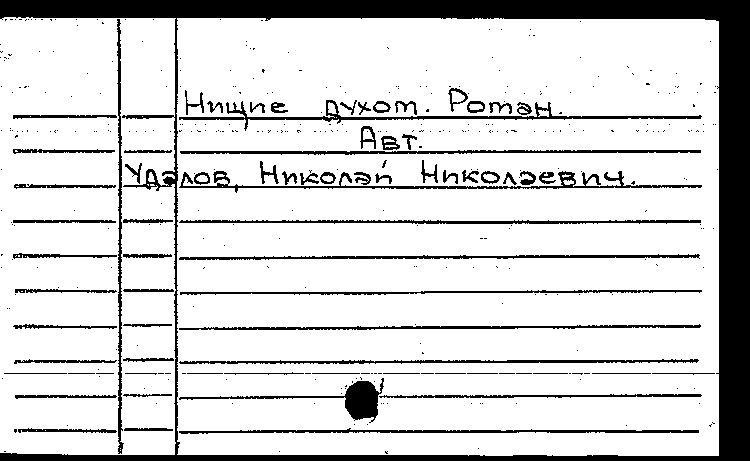 Нищие духом. Роман.
Авт.
Удалов, Николай Николаевич.